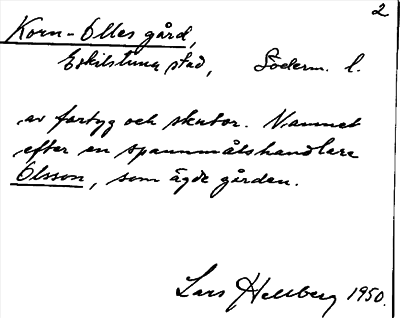 2
Korn-Olles gård,
Eskilstuna stad, Söderm. l.
av fartyg och skutor. Namnet
efter en spannmålshandlare
Olsson, som ägde gården.
Lars Hellberg 1950.